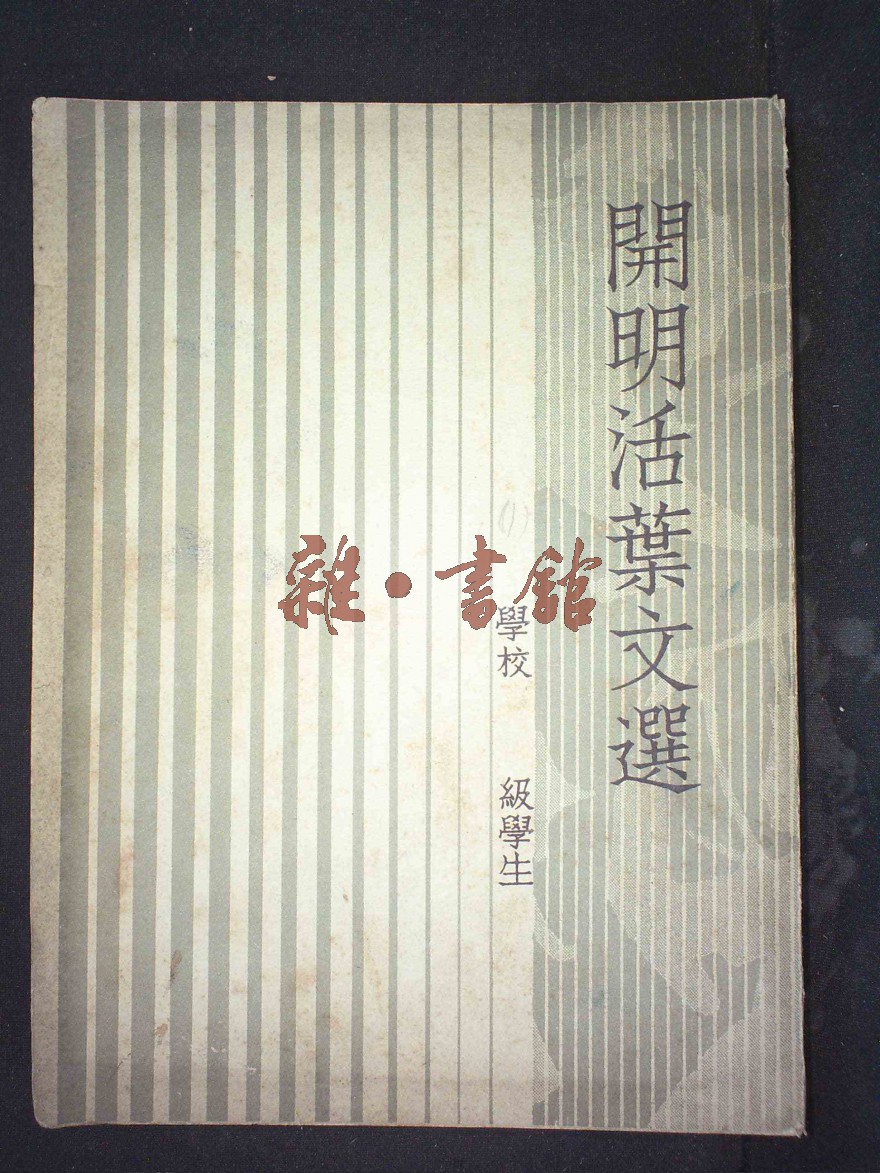 開明活葉文選
學校
級學生
(1)
雜•書館